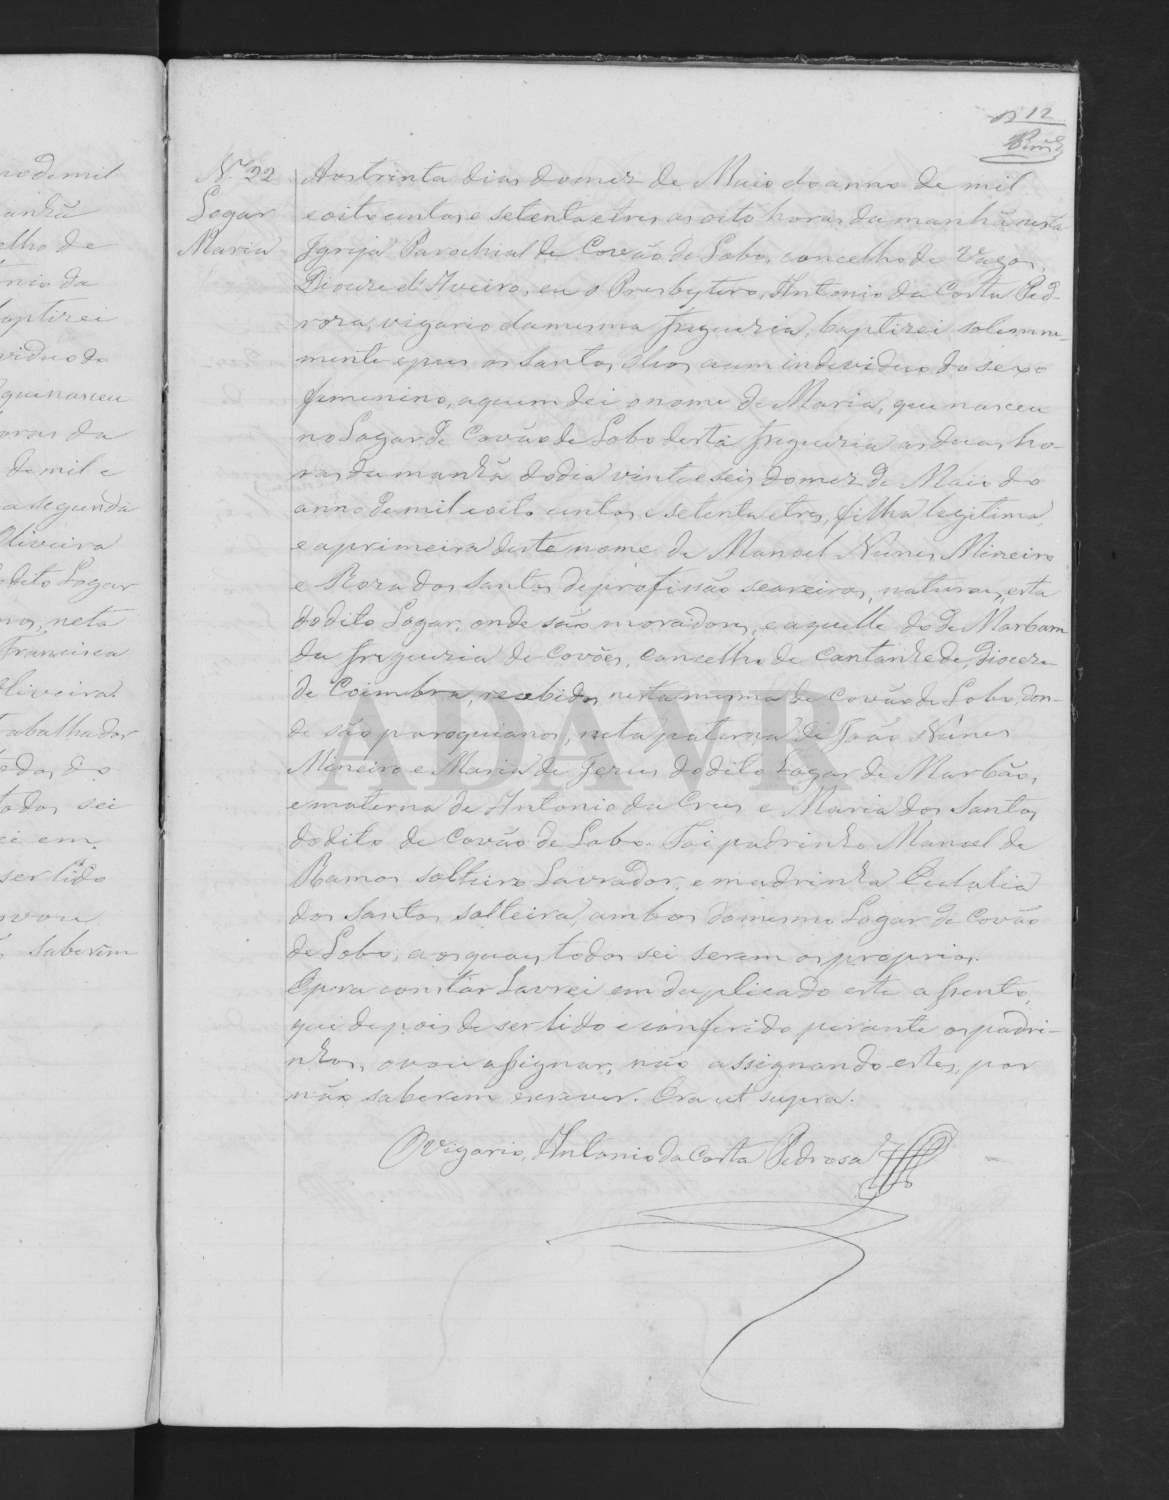 12
N.º 22
Logar
Maria
Aos trinta dias do mez de Maio do anno de mil
e oito centos e setenta e tres as oito horas da manhã nesta
Igreja Parochial de Covão do Lobo, concelho de Vagos,
Diocese d'Aveiro, eu o Presbytero, Antonio da Costa Ped-
rosa, vigario da mesma freguezia, baptizei solemne-
mente e puz os Santos Oleos a um individuo do sexo
femenino, a quem dei o nome de Maria, que nasceu
no Logar de Covão do Lobo desta freguezia as duas ho-
ras da manhã do dia vinte e seis do mez de Maio do
anno de mil e oito centos e setenta e tres, filha legitima,
e a primeira deste nome de Manoel Nunes Mineiro
e Roza dos Santos de profissão seareiros, naturaes, esta
do dito Logar, onde são moradores, e aquelle do de Marbam
da freguezia de Covões, Concelho de Cantanhede, Diocese
de Coimbra, recebidos nesta mesma de Covão do Lobo, don-
de são paroquianos, neta paterna de João Nunes
Mineiro e Maria de Jezus do dito Logar de Marbão,
e materna de Antonio da Cruz e Maria dos Santos
do dito de Covão do Lobo. Foi padrinho Manoel de
Ramos solteiro Lavrador, e madrinha Eulalia
dos Santos solteira, ambos do mesmo Logar de Covão
do Lobo, aos quaes todos sei serem os proprios.
E pra constar Lavrei em duplicado este assento,
que depois de ser lido e conferido perante os padri-
nhos, o vou assignar, não assignando estes, por
não saberem escrever. Era ut supra.
O vigario, Antonio da Costa Pedrosa
ADAVR
no de mil
anhã
elho de
tonio da
baptizei
viduo do
que nasceu
oras da
de mil e
a segunda
Oliveira
do dito Logar
neta
Francisca
Oliveira
trabalhador
todos do
todos sei
ei em
ser lido
o vou
saberem